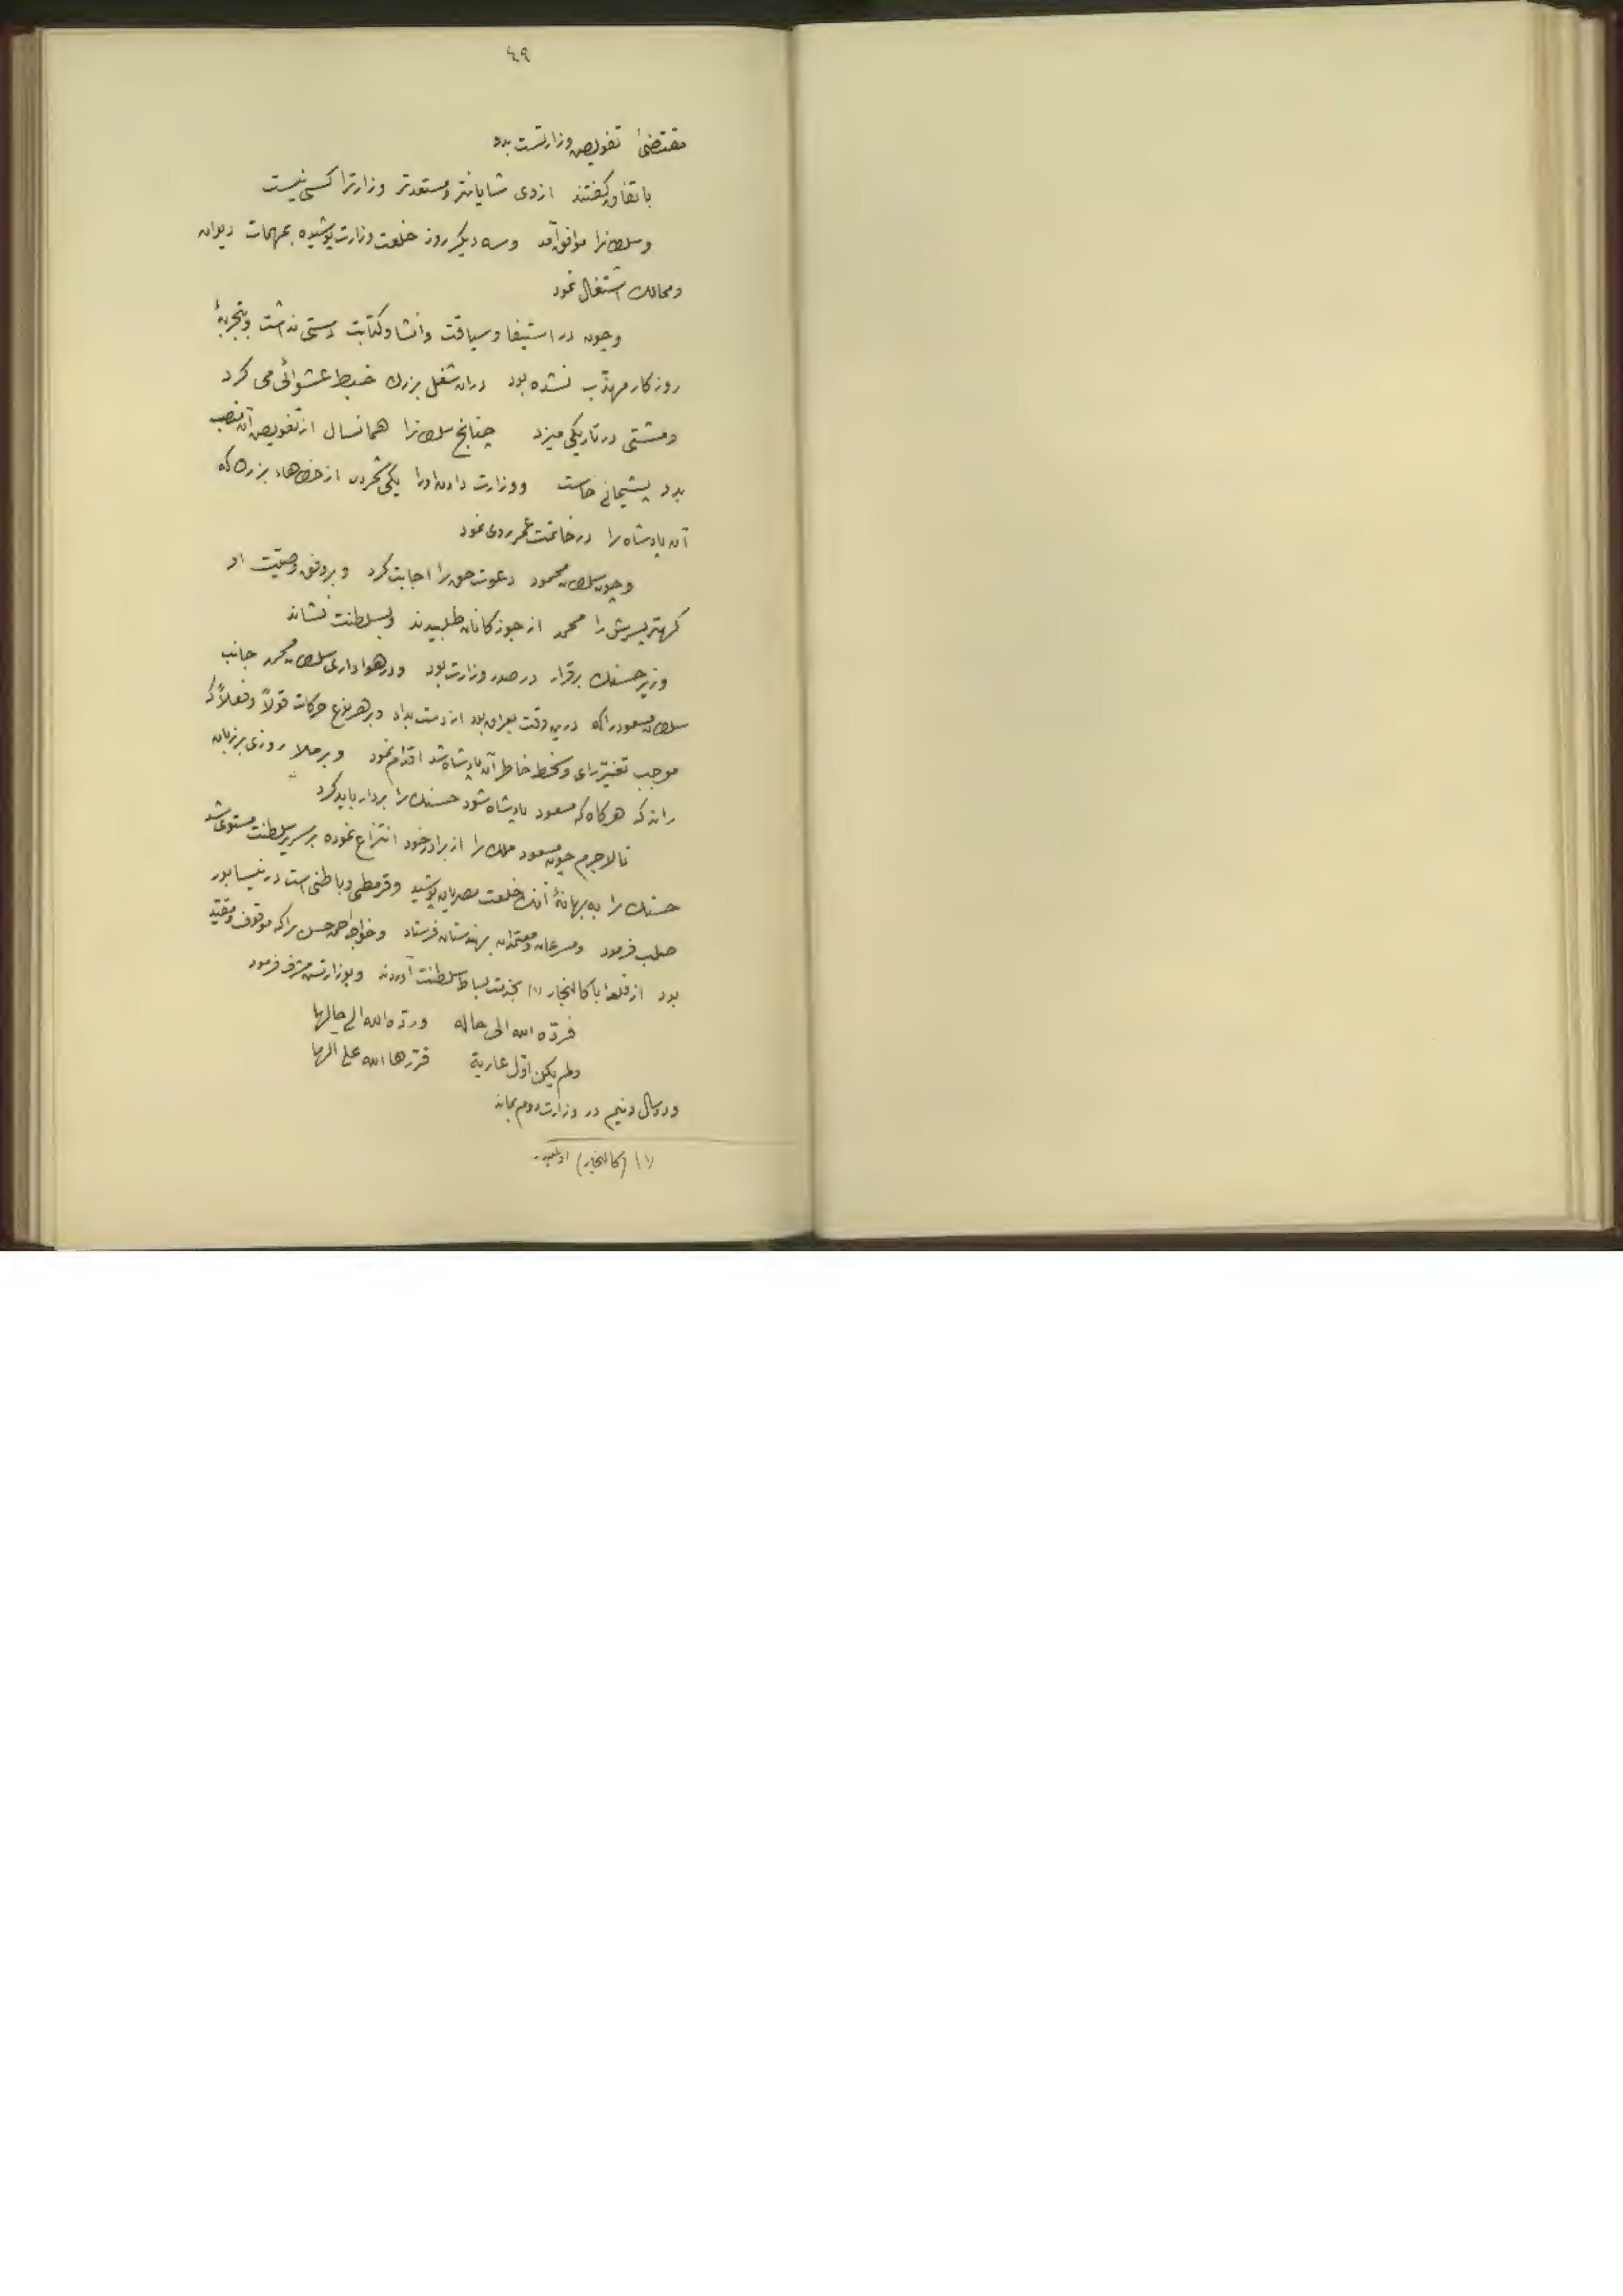 ٤٩
مقتضئ تفويض وزارتست بدو
باتفاق گفتند ازوى شايانتر ومستعدتر وزارترا كسى نيست
وسلطانرا موافق آمد وسه ديكر روز خلعت وزارت پوشيده بمهمات ديوان
وممالك اشتغال نمود
وچون در استيفا وسياقت وانشا وكتابت دستى نداشت وبتجربهٔ
روزكار مهذّب نشده بود دران شغل بزرك خبط عشوائى مى كرد
ومشتى در تاريكى ميزد چنانچ سلطانرا همانسال از تفويض آن منصب
بدو پشيمانى خاست ووزارت دادن اورا يكى شمردن از خطاهاء بزرك كه
آن پادشاه را در خاتمت عمر روى نمود
وچون سلطان محمود دعوت حق را اجابت كرد وبر وفق وصيّت او
كهتر پسرش را محمد از جوزكانان طلبيدند وبسلطنت نشاند
وزير حسنك برقرار در صدر وزارت بود ودر هوادارى سلطان محمد جانب
سلطان مسعود راكه درين وقت بعراق بود از دست بداد وبر هر نوع حركات قولاً وفعلاً كه
موجب تغيّر راى وسخط خاطر آن پادشاه شد اقدام نمود وبرملا روزى بر زبان
راند كه هركاه كه مسعود پادشاه شود حسنك را بردار بايد كرد
تا لاجرم چون مسعود ملك را از برادر خود انتزاع نموده بر سرير سلطنت مستولى شد
حسنك را به بهانهٔ آنك خلعت مصريان پوشيد وقرمطى وباطنى است در نيسابور
صلب فرمود ومسرعان ومعتمدان بهندستان فرستاد وخواجه احمد حسن راكه موقوف ومقيّد
بود از قلعهٔ باكالنجار (١) بخدمت بساط سلطنت آوردند وبوزارتش مشرف فرمود
فردّه الله الى حاله وردّه الله الى حالها
ولم يكن اوّل عارية قرّرها الله على الها
ودو سال ونيم در وزارت دوم بماند
(١) (كالنجار)